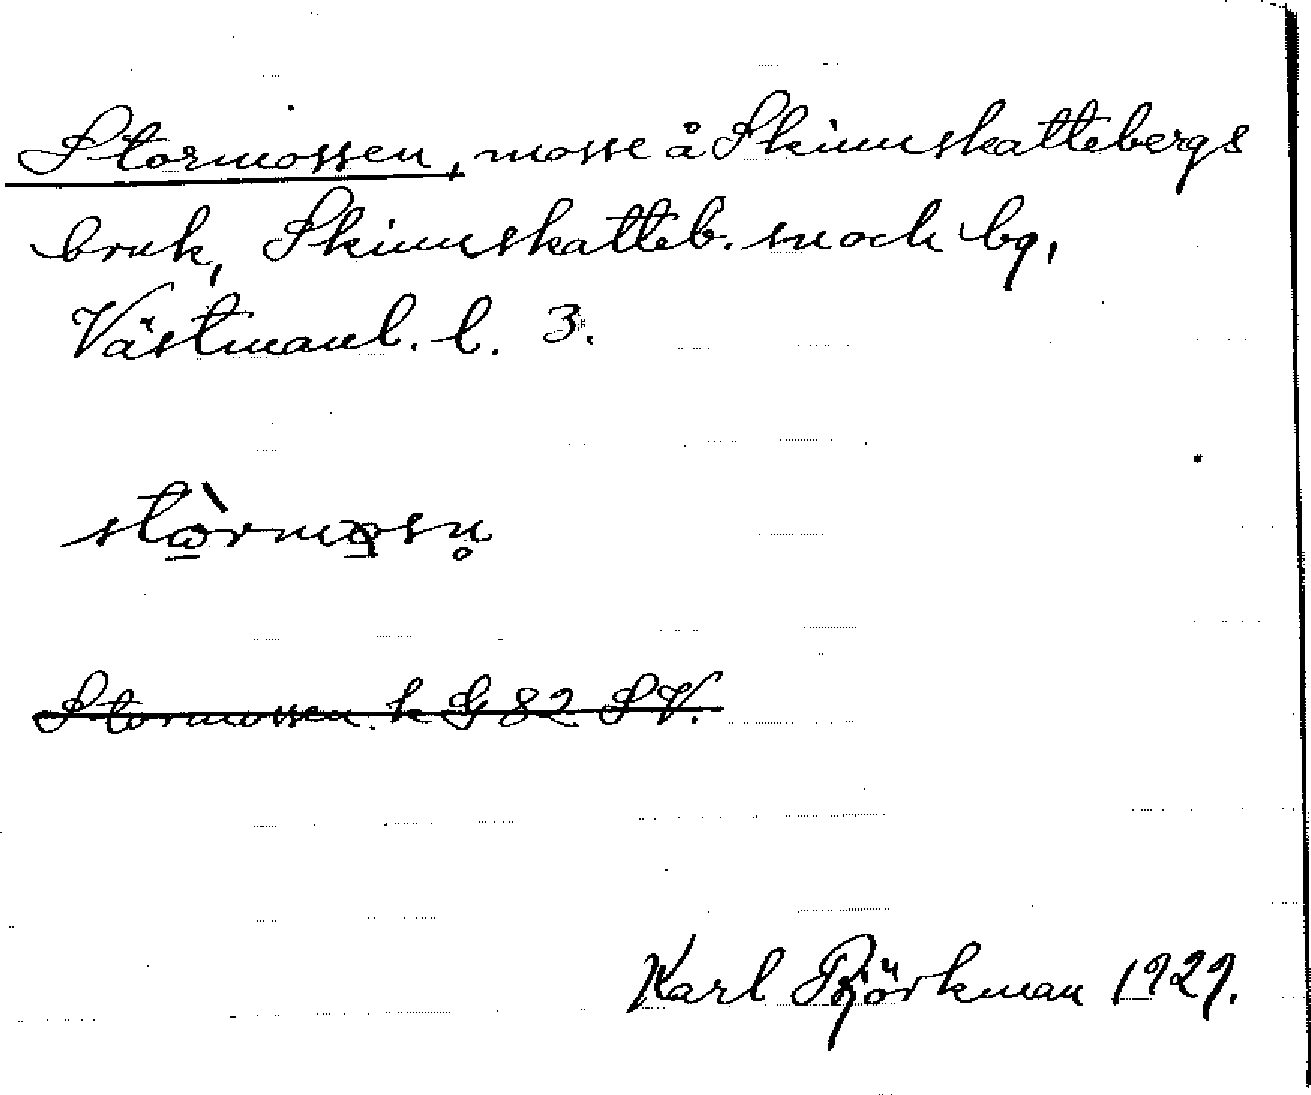 Stormossen, mosse å Skinnskattebergs
bruk, Skinnskatteb. sn och bg,
Västmanl. l. 3.
stòrmosn̥
Stormossen. k G 82 SV.
Karl Björkman 1929.